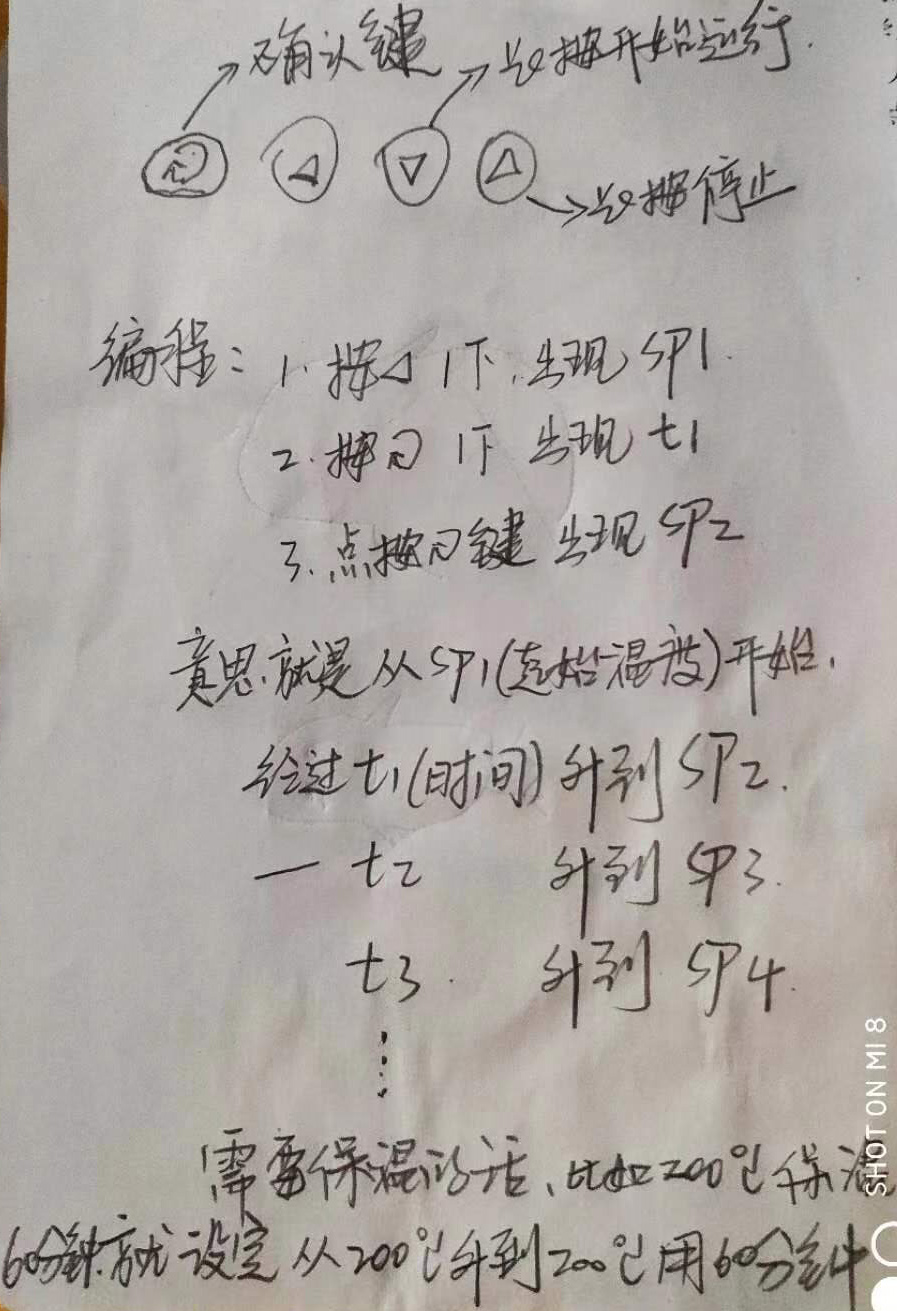 确认键 长按开始运行.
长按停止
编程: 1. 按◁ 1下, 出现 SP1.
2. 按↻ 1下 出现 t1
3. 点按↻键 出现 SP2
意思就是从SP1(起始温度)开始,
经过t1(时间)升到SP2.
— t2 升到 SP3.
t3. 升到 SP4.
⋮
需要保温的话、比如200℃保温
60分钟.就设定从200℃升到200℃用60分钟
SHOT ON MI 8